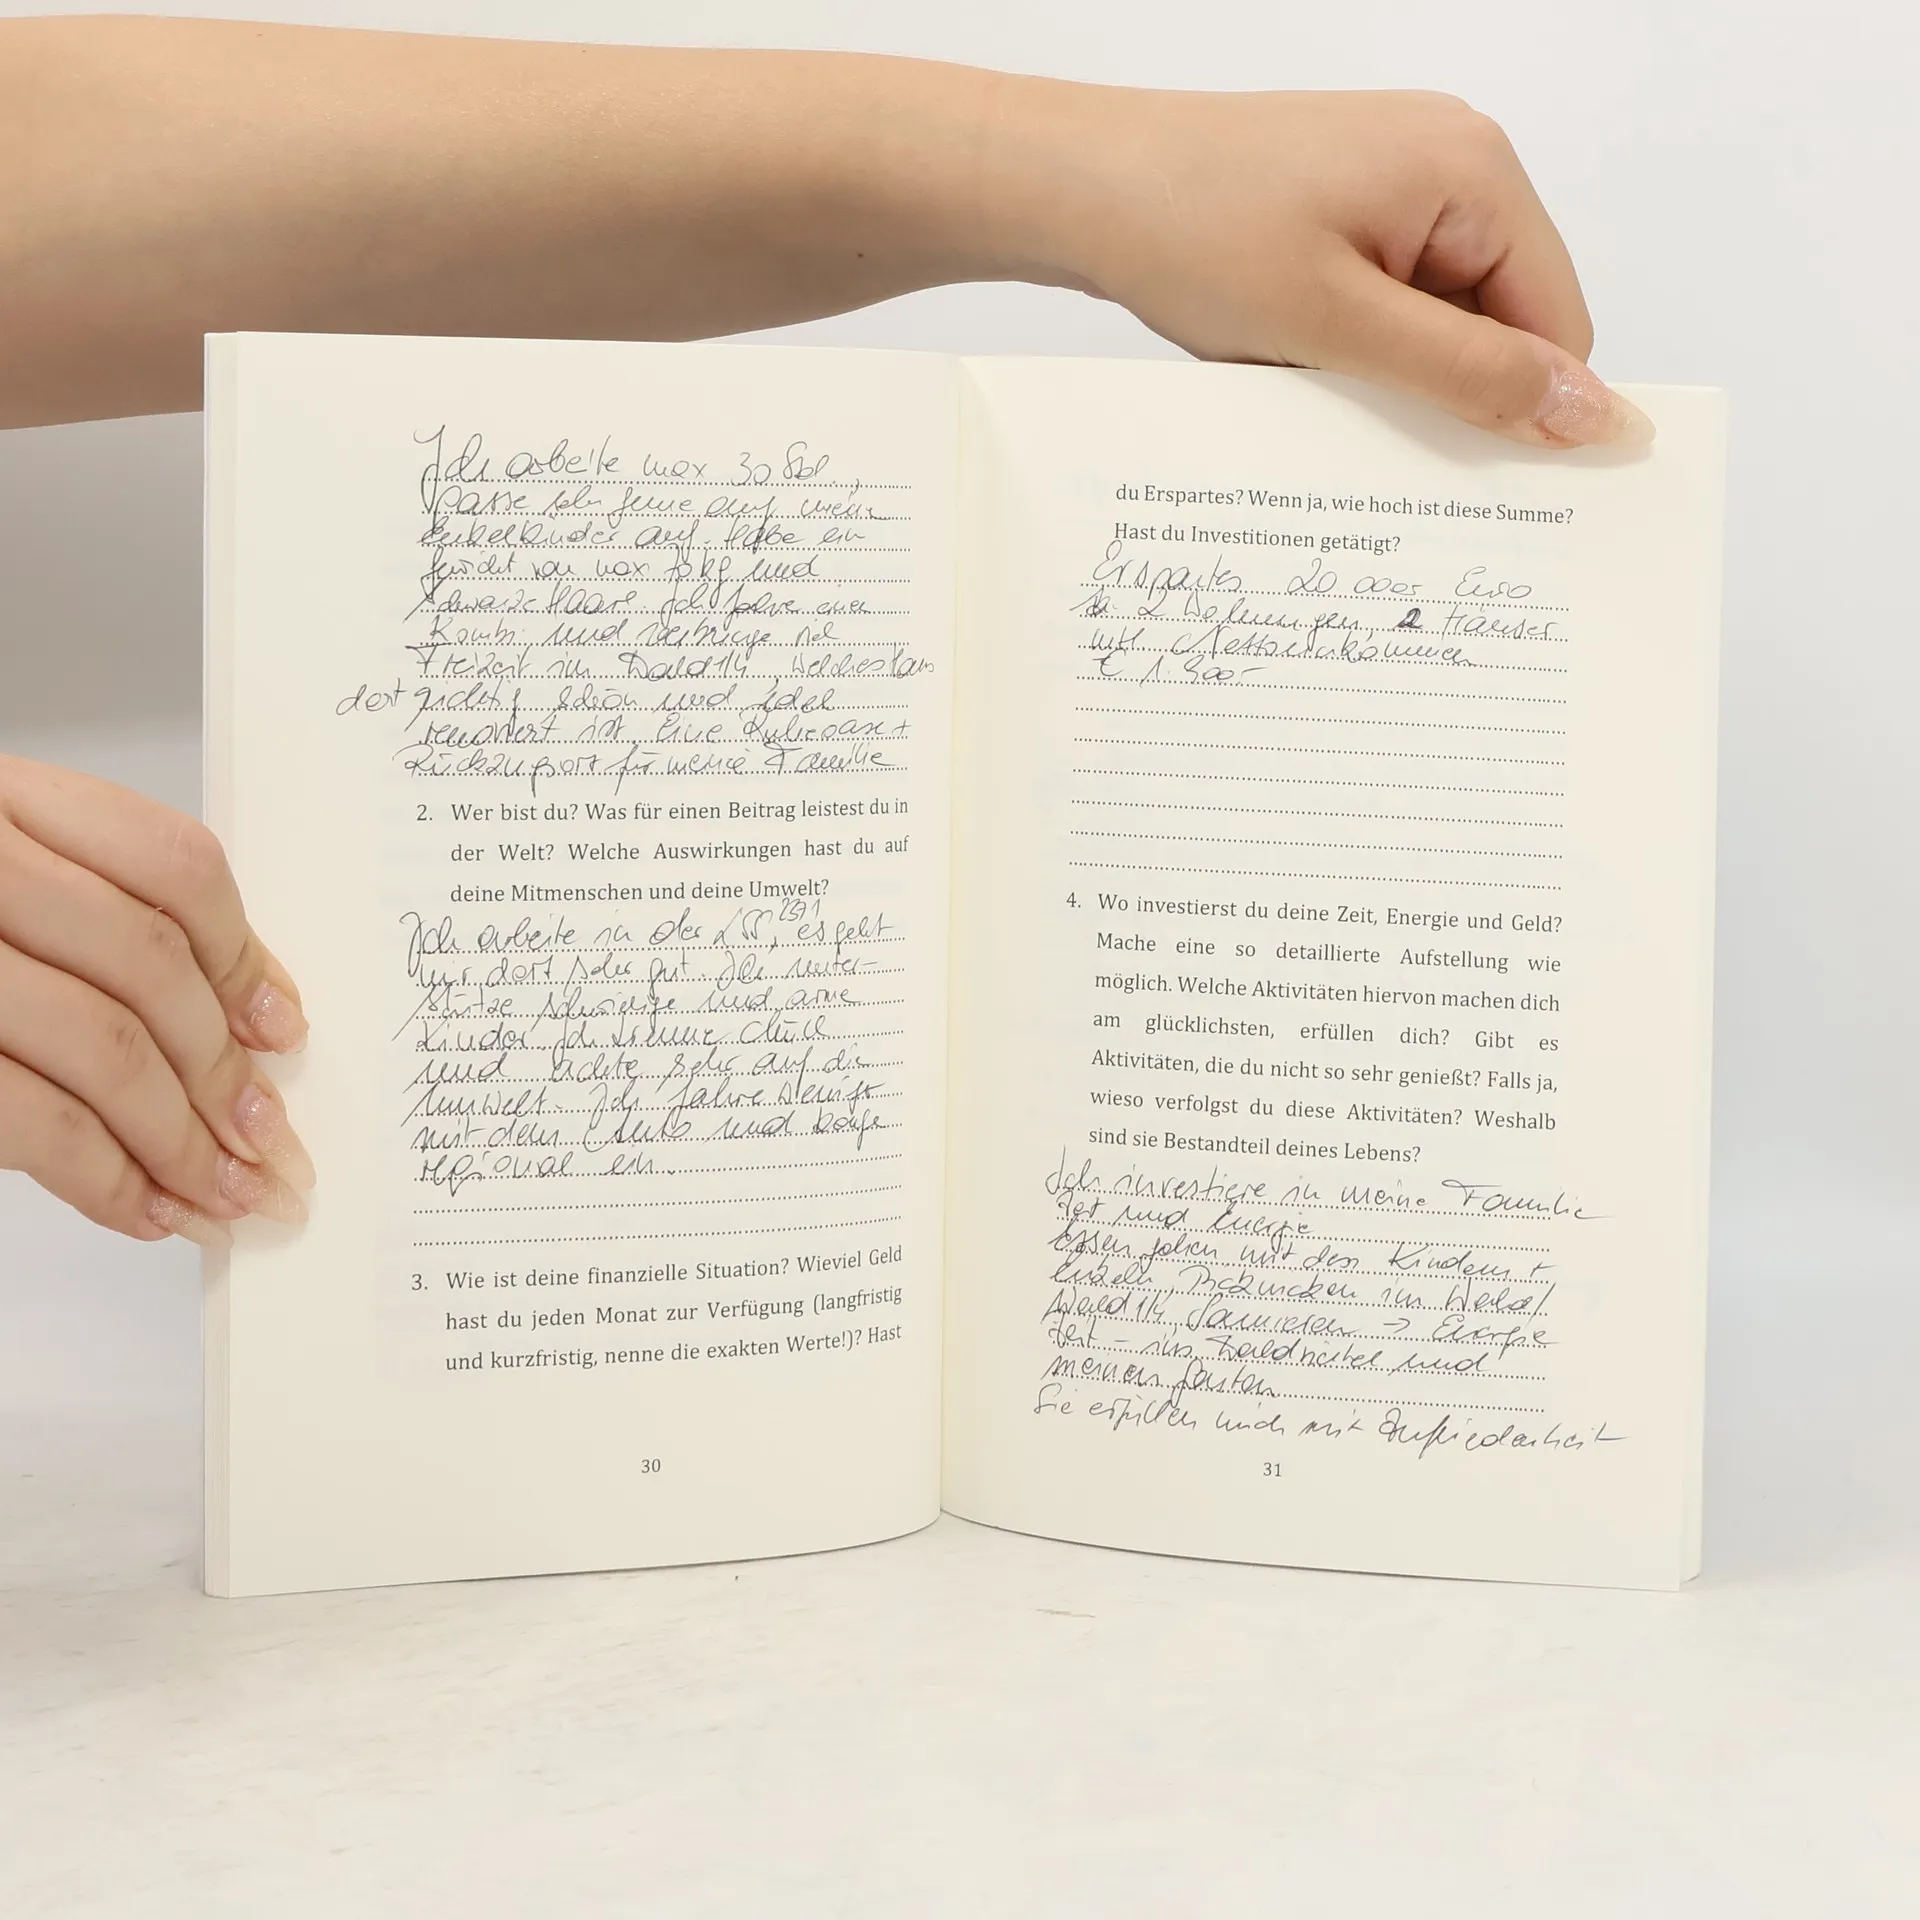 Ich arbeite max 30 Std.,
passe sehr gerne auf meine
Enkelkinder auf. Habe ein
Gewicht von max 70 kg und
schwarze Haare. Ich fahre einen
Kombi und verbringe viel
Freizeit im Wald1/4, welches Haus
dort richtig schön und edel
renoviert ist. Eine Ruheoase +
Rückzugsort für meine Familie
2. Wer bist du? Was für einen Beitrag leistest du in
der Welt? Welche Auswirkungen hast du auf
deine Mitmenschen und deine Umwelt?
Ich arbeite in der 2371, es geht
mir dort sehr gut. Ich unter-
stütze schwierige und arme
Kinder. Ich trenne Müll
und achte sehr auf die
Umwelt. Ich fahre wenig
mit dem Auto und kaufe
regional ein.
3. Wie ist deine finanzielle Situation? Wieviel Geld
hast du jeden Monat zur Verfügung (langfristig
und kurzfristig, nenne die exakten Werte!)? Hast
30
du Erspartes? Wenn ja, wie hoch ist diese Summe?
Hast du Investitionen getätigt?
Erspartes 20 000er Euro
ja. 2 Wohnungen, 2 Häuser
mtl. Nettoeinkommen
€ 1.900.-
4. Wo investierst du deine Zeit, Energie und Geld?
Mache eine so detaillierte Aufstellung wie
möglich. Welche Aktivitäten hiervon machen dich
am glücklichsten, erfüllen dich? Gibt es
Aktivitäten, die du nicht so sehr genießt? Falls ja,
wieso verfolgst du diese Aktivitäten? Weshalb
sind sie Bestandteil deines Lebens?
Ich investiere in meine Familie
Zeit und Energie
Essen gehen mit den Kindern +
Enkeln, im Wald/
Wald1/4, Sanieren → Energie
Zeit – ins Waldviertel und
meinen Garten
Sie erfüllen mich mit Zufriedenheit
31